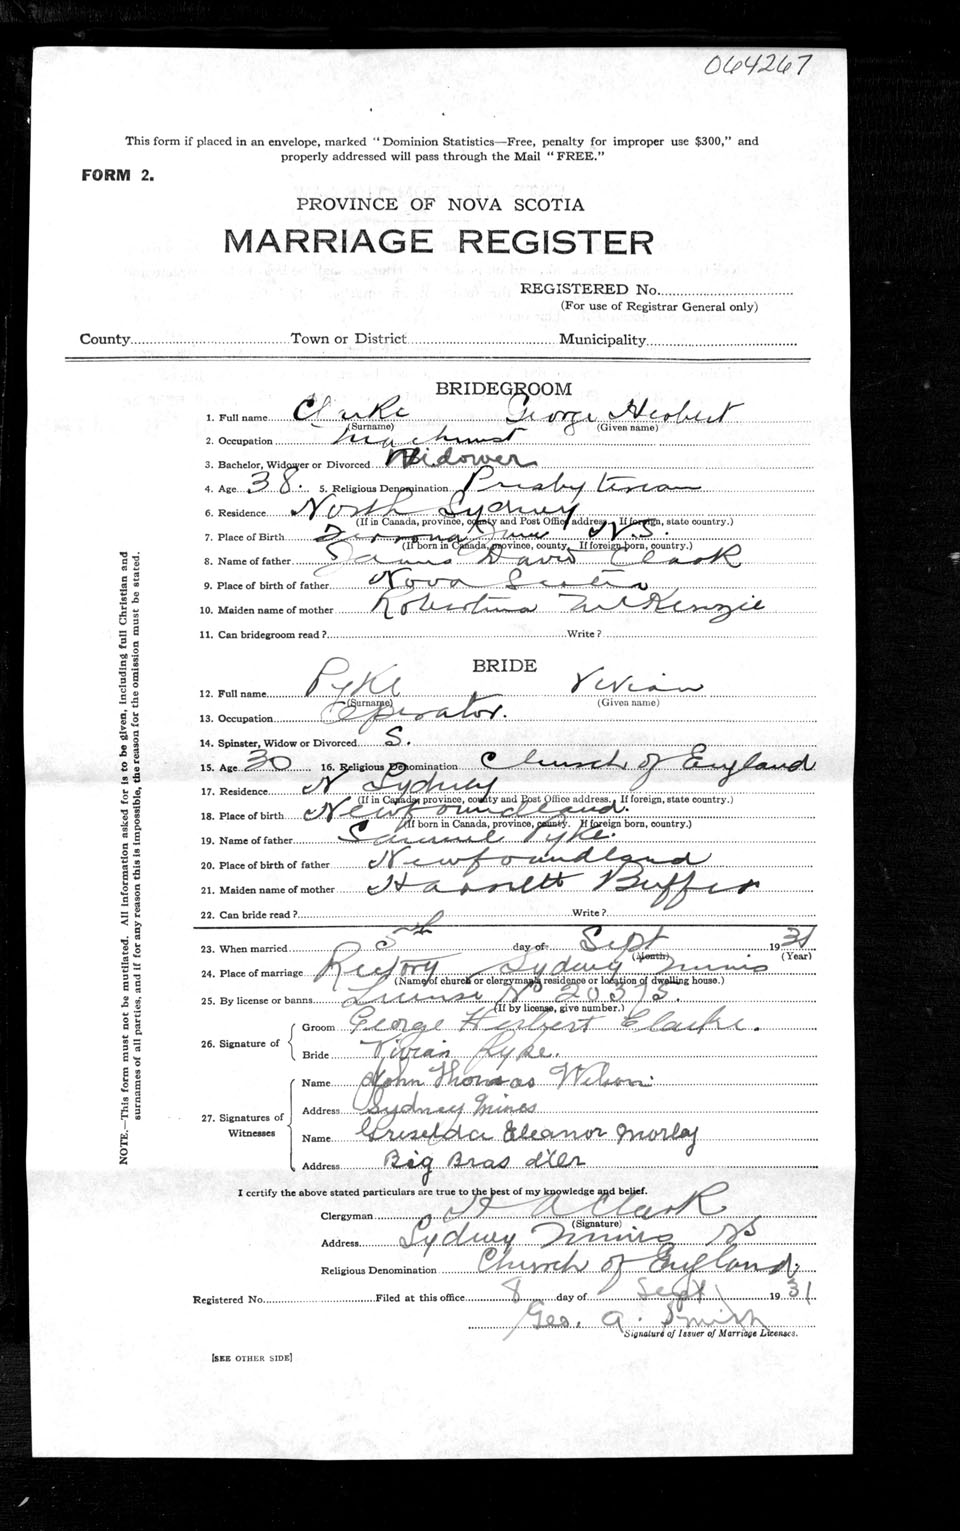 064267
This form if placed in an envelope, marked "Dominion Statistics—Free, penalty for improper use $300," and
properly addressed will pass through the Mail "FREE."
FORM 2.
PROVINCE OF NOVA SCOTIA
MARRIAGE REGISTER
REGISTERED No.
(For use of Registrar General only)
County Town or District Municipality
BRIDEGROOM
1. Full name Clarke George Herbert
(Surname) (Given name)
2. Occupation Machinist
3. Bachelor, Widower or Divorced Widower
4. Age 38. 5. Religious Denomination Presbyterian
6. Residence North Sydney
(If in Canada, province, county and Post Office address. If foreign, state country.)
7. Place of Birth N.S.
(If born in Canada, province, county. If foreign born, country.)
8. Name of father James David Clark
9. Place of birth of father Nova Scotia
10. Maiden name of mother Robertina McKenzie
11. Can bridegroom read? Write?
BRIDE
12. Full name Pyke Vivian
(Surname) (Given name)
13. Occupation Operator.
14. Spinster, Widow or Divorced S.
15. Age 30 16. Religious Denomination Church of England
17. Residence N Sydney
(If in Canada, province, county and Post Office address. If foreign, state country.)
18. Place of birth Newfoundland.
(If born in Canada, province, county. If foreign born, country.)
19. Name of father Samuel Pyke.
20. Place of birth of father Newfoundland
21. Maiden name of mother Harriett Buffer
22. Can bride read? Write?
23. When married 5th day of Sept 1931
(Month) (Year)
24. Place of marriage Rectory Sydney Mines
(Name of church or clergyman's residence or location of dwelling house.)
25. By license or banns License No 20315.
(If by license, give number.)
26. Signature of Groom George Herbert Clarke.
Bride Vivian Pyke.
27. Signatures of Witnesses Name John Thomas Wilson
Address Sydney Mines
Name Griselda Eleanor Morley
Address Big Bras d'Or
I certify the above stated particulars are true to the best of my knowledge and belief.
Clergyman H A Clark
(Signature)
Address Sydney Mines NS
Religious Denomination Church of England.
Registered No. Filed at this office 8 day of Sept 1931
Geo. A. Smith
Signature of Issuer of Marriage Licenses.
[SEE OTHER SIDE]
NOTE.—This form must not be mutilated. All information asked for is to be given, including full Christian and
surnames of all parties, and if for any reason this is impossible, the reason for the omission must be stated.